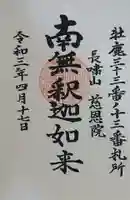 牡鹿三十三番ノ十三番札所
長𡸴山 慈恩院
南無釈迦如来
令和三年四月十七日